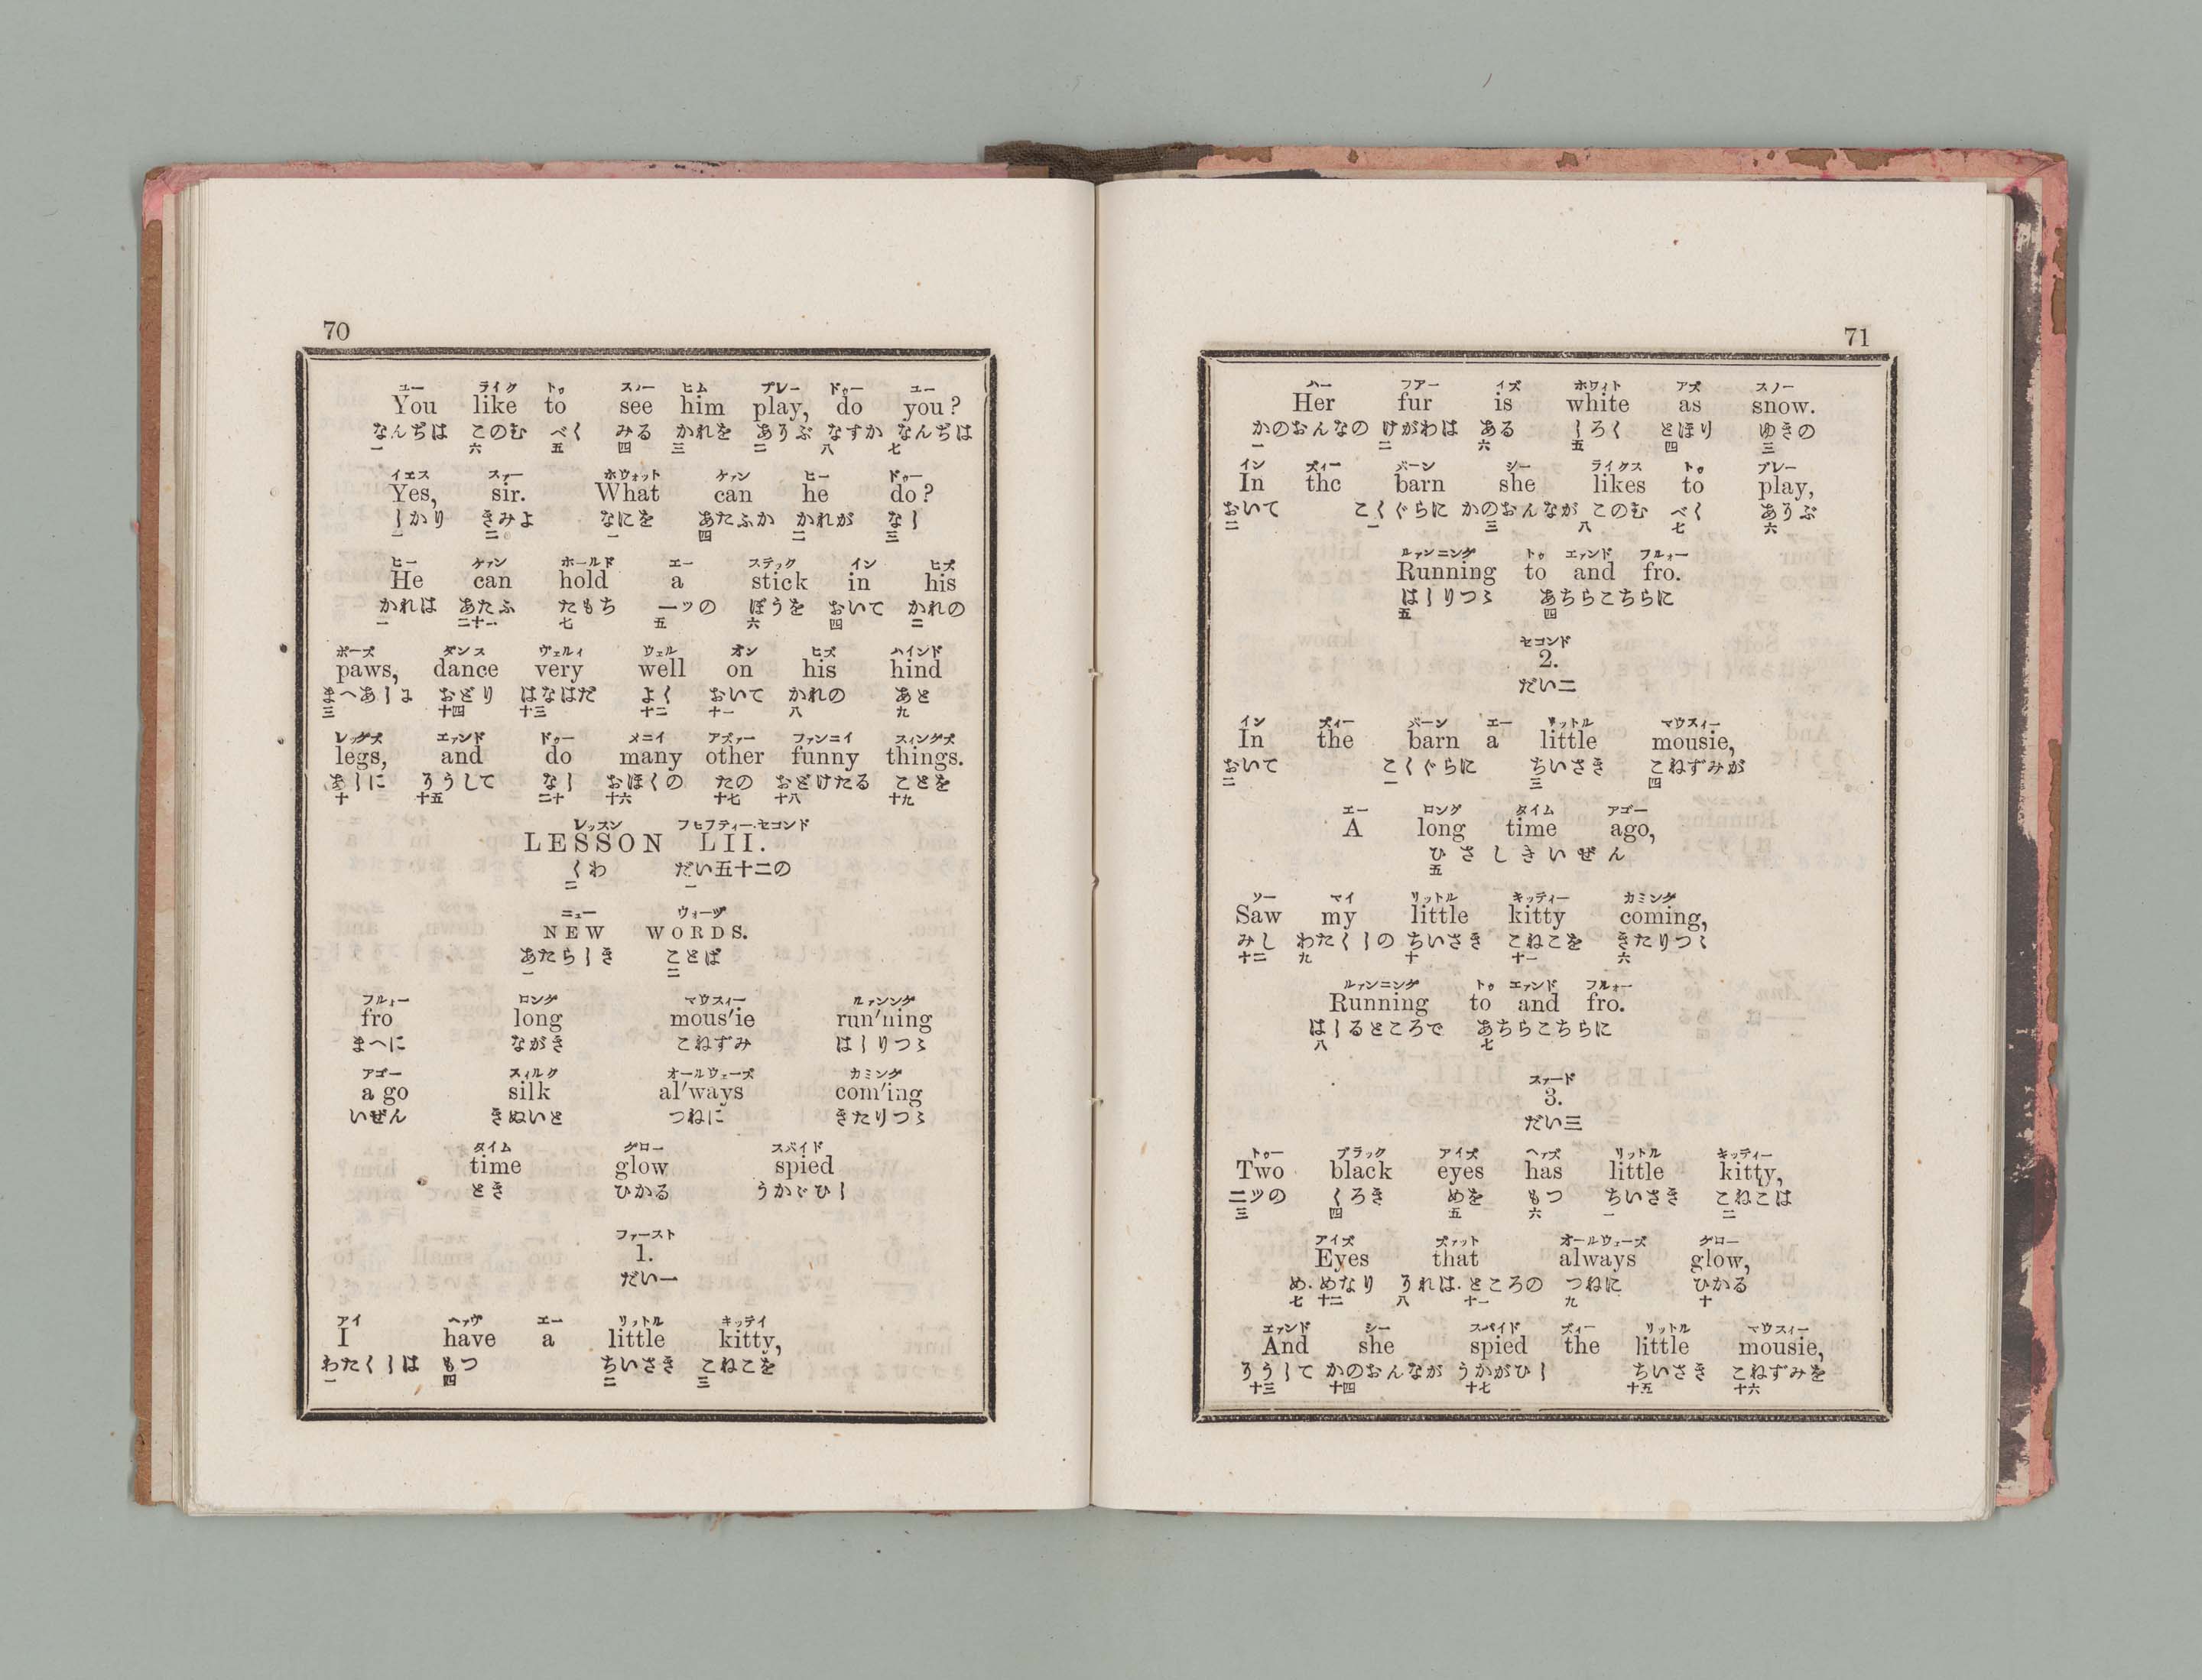 70
ユー ライク トゥ スィー ヒム プレー ドゥー ユー
You like to see him play, do you?
なんぢは このむ べく みる かれを あうぶ なすか なんぢは
一 六 五 四 三 二 八 七
イエス スァー ホウォット ケァン ヒー ドゥー
Yes, sir. What can he do?
しかり きみよ なにを あたふか かれが なし
一 二 一 四 二 三
ヒー ケァン ホールド エー ステック イン ヒズ
He can hold a stick in his
かれは あたふ たもち 一ッの ぼうを おいて かれの
一 二十一 七 五 六 四 二
ポーズ ダンス ヴェルィ ウェル オン ヒズ ハインド
paws, dance very well on his hind
まへあしょ おどり はなはだ よく おいて かれの あと
三 十四 十三 十二 十一 八 九
レッグズ エァンド ドゥー メニイ アズァー ファンニイ スィングズ
legs, and do many other funny things.
あしに そうして なし おほくの たの おどけたる ことを
十 十五 二十 十六 十七 十八 十九
レッスン フヒフティー・セコンド
LESSON LII.
くわ だい五十二の
二 一
ニュー ウォーヅ
NEW WORDS.
あたらしき ことば
一 二
フルォー ロング マウスィー ルァンング
fro long mous'ie run'ning
まへに ながき こねずみ はしりつゝ
アゴー スィルク オールウェーズ カミング
a go silk al'ways com'ing
いぜん きぬいと つねに きたりつゝ
タイム グロー スパイド
time glow spied
とき ひかる うかゞひし
ファースト
1.
だい一
アイ ヘァヴ エー リットル キッテイ
I have a little kitty,
わたくしは もつ ちいさき こねこを
一 四 二 三
71
ハー フアー イズ ホワィト アズ スノー
Her fur is white as snow.
かのおんなの けがわは ある しろく とほり ゆきの
一 二 六 五 四 三
イン ズィー バーン シー ライクス トゥ プレー
In the barn she likes to play,
おいて こくぐらに かのおんなが このむ べく あうぶ
二 一 三 八 七 六
ルァンニング トゥ エァンド フルォー
Running to and fro.
はしりつゝ あちらこちらに
五 四
セコンド
2.
だい二
イン ズィー バーン エー リットル マウスィー
In the barn a little mousie,
おいて こくぐらに ちいさき こねずみが
二 一 三 四
エー ロング タイム アゴー
A long time ago,
ひさしきいぜん
五
ソー マイ リットル キッティー カミング
Saw my little kitty coming,
みし わたくしの ちいさき こねこを きたりつゝ
十二 九 十 十一 六
ルァンニング トゥ エァンド フルォー
Running to and fro.
はしるところで あちらこちらに
八 七
スァード
3.
だい三
トゥー ブラック アイズ ヘァズ リットル キッティー
Two black eyes has little kitty,
二ツの くろき めを もつ ちいさき こねこは
三 四 五 六 一 二
アイズ ズァット オールウェーズ グロー
Eyes that always glow,
め・めなり それは・ところの つねに ひかる
七 十二 八 十一 九 十
エァンド シー スパイド ズィー リットル マウスィー
And she spied the little mousie,
そうして かのおんなが うかがひし ちいさき こねずみを
十三 十四 十七 十五 十六